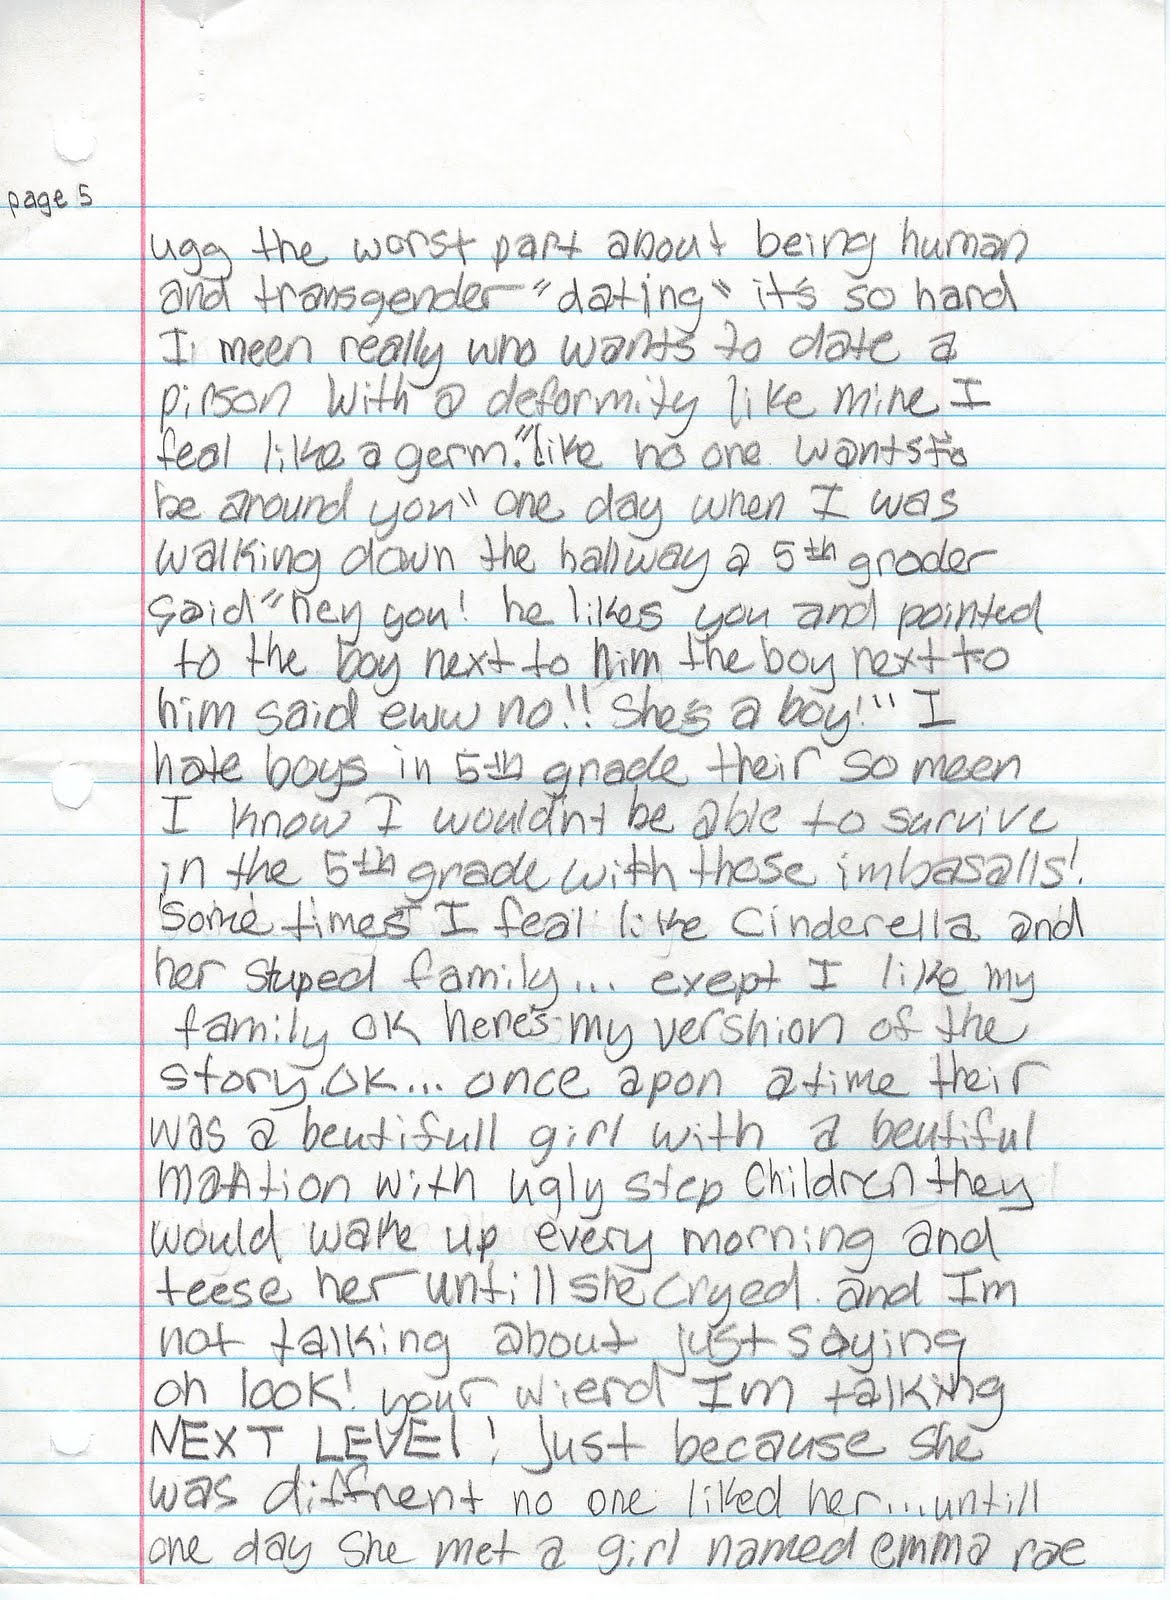 page 5
ugg the worst part about being human
and transgender "dating" it's so hard
I meen really who wants to date a
pirson with a deformity like mine I
feal like a germ. "like no one wants to
be around you" one day when I was
walking down the hallway a 5th grader
said "hey you! he likes you and pointed
to the boy next to him the boy next to
him said eww no!! She's a boy!" I
hate boys in 5th grade their so meen
I know I wouldn't be able to survive
in the 5th grade with those imbasalls!
Some times I feal like Cinderella and
her stuped family... exept I like my
family OK here's my vershion of the
story. OK... once apon a time their
was a beutifull girl with a beutiful
mantion with ugly step children they
would wake up every morning and
teese her untill she cryed. and Im
not talking about just saying
oh look! your wierd Im talking
NEXT LEVEl! just because she
was diffrent no one liked her... untill
one day she met a girl named emma rae